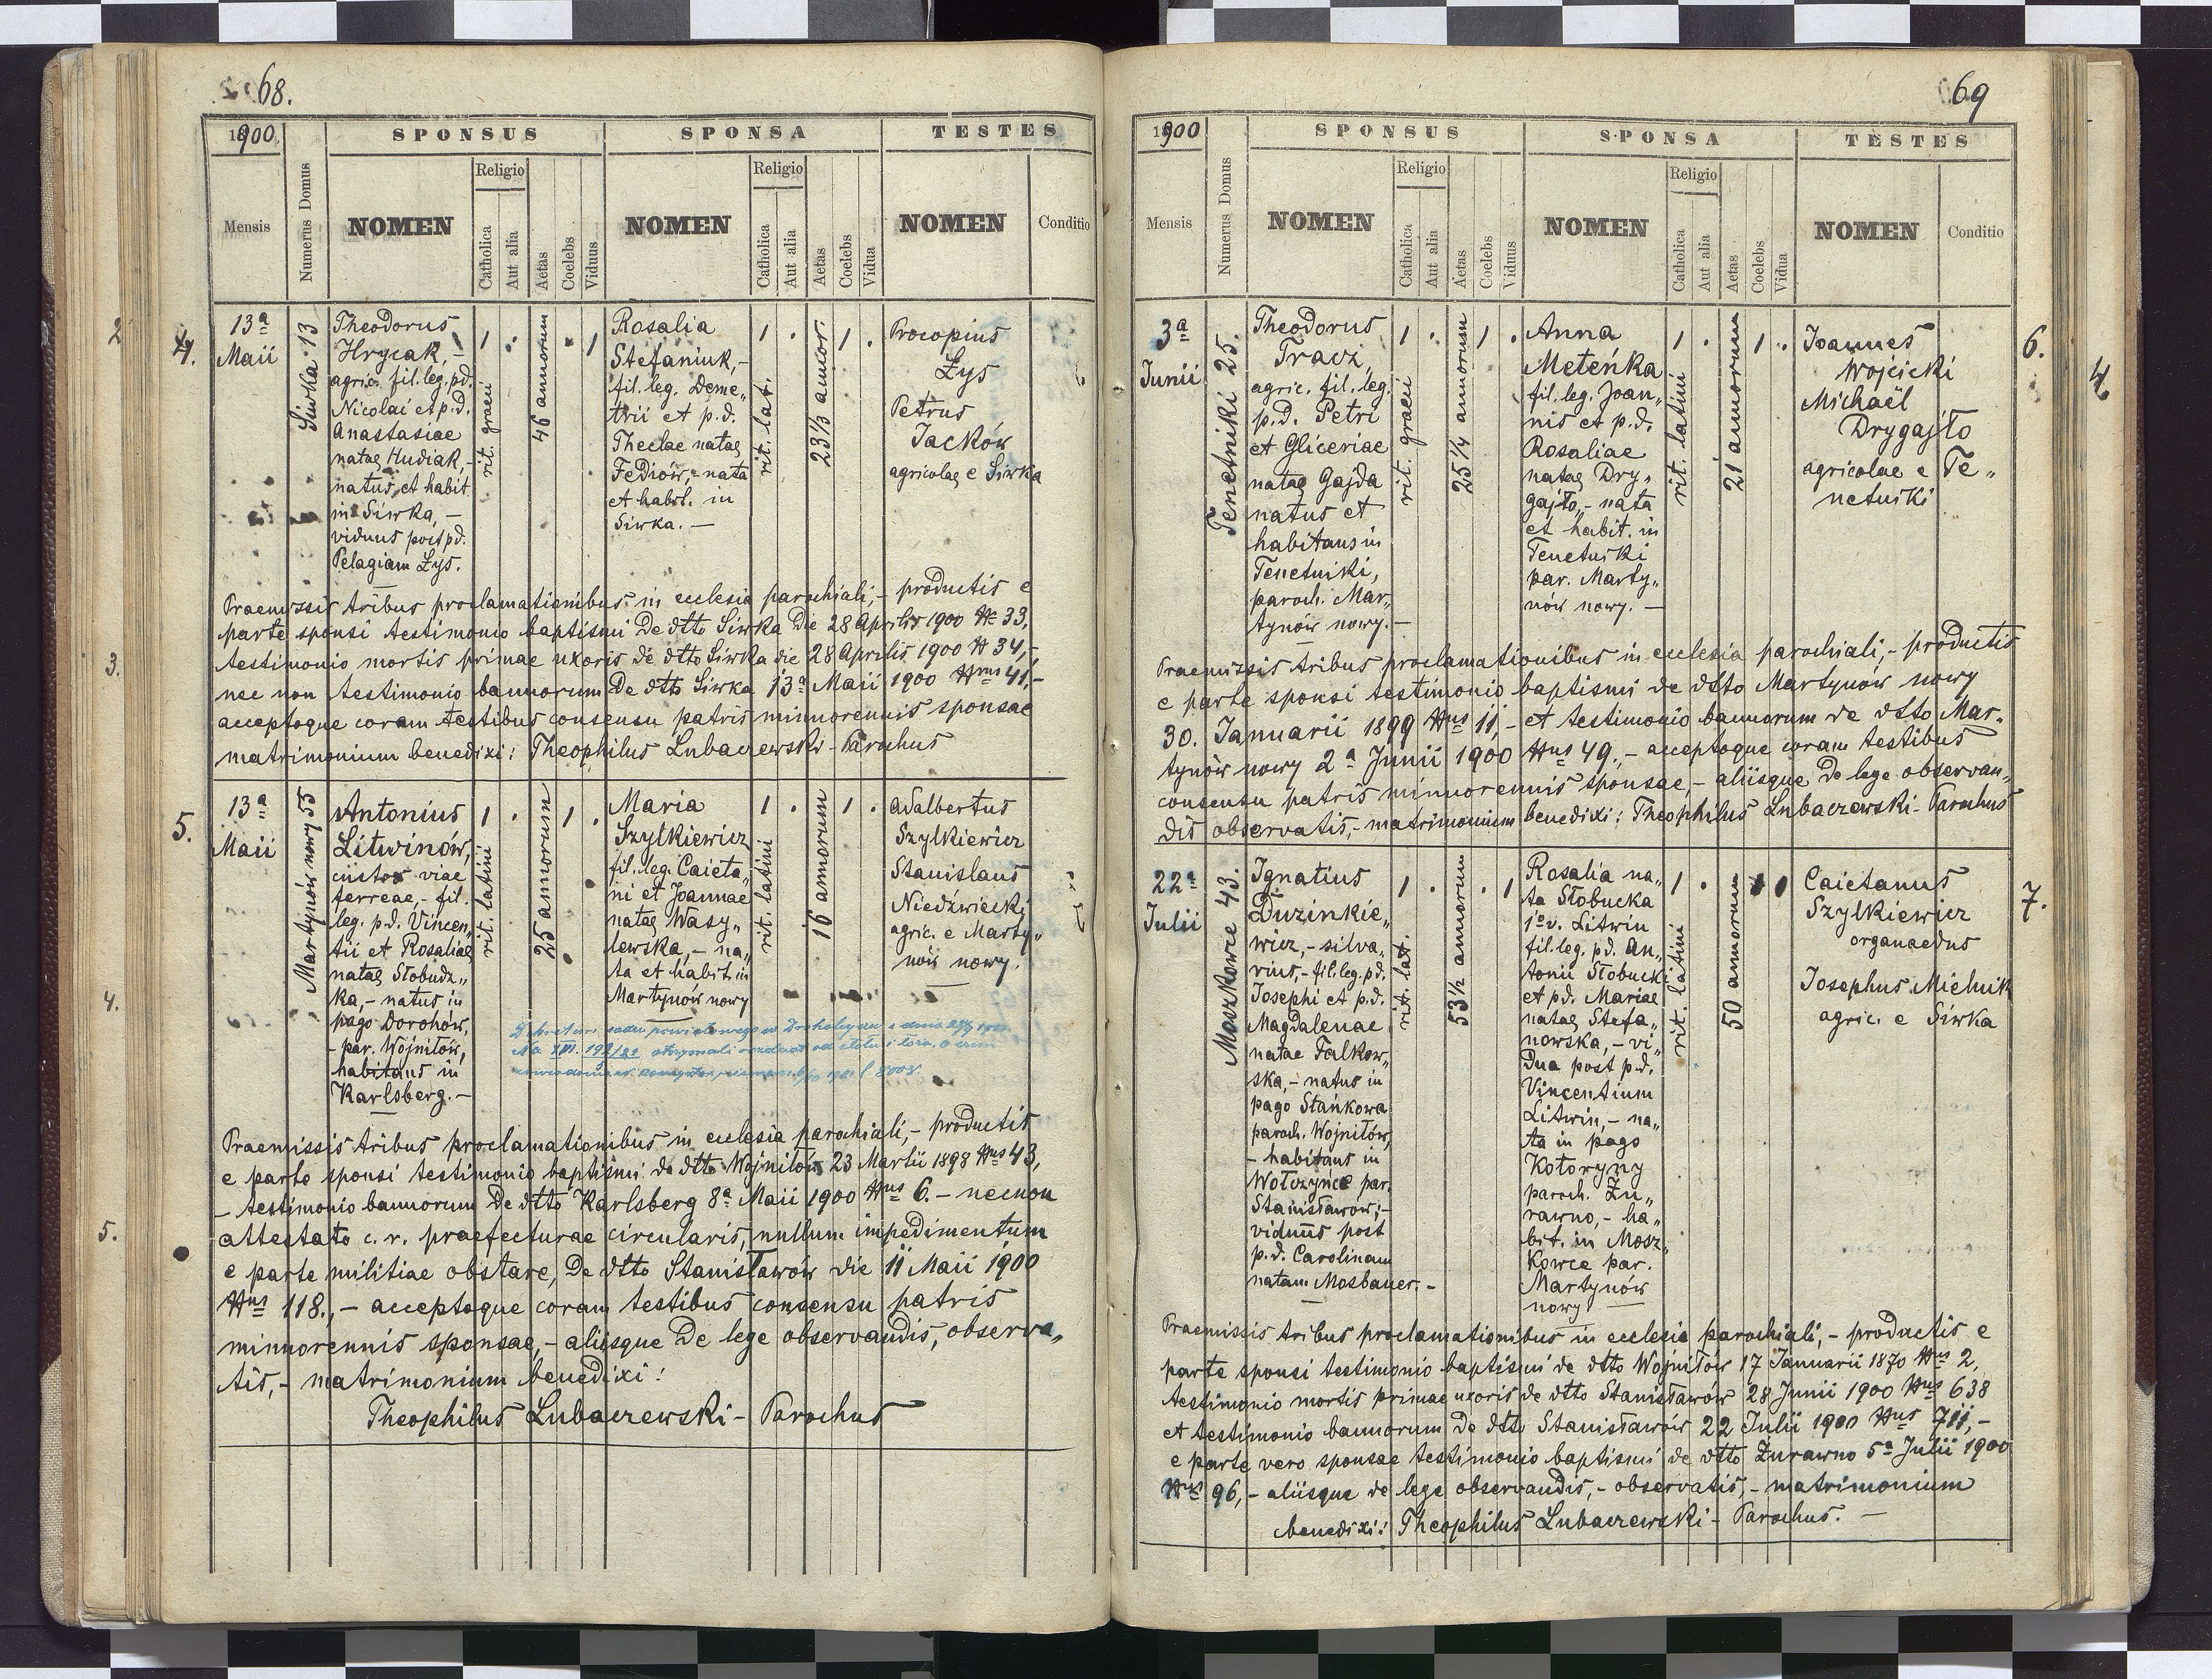 68.
1900.
SPONSUS
SPONSA
TESTES
Mensis
Numerus Domus
NOMEN
Religio
Catholica
Aut alia
Aetas
Coelebs
Viduus
NOMEN
Religio
Catholica
Aut alia
Aetas
Coelebs
Vidua
NOMEN
Conditio
2
4.
13ª
Maii
Siwka 13
Theodorus
Hrycak, -
agric. fil. leg. pd.
Nicolai et p.d.
Anastasiae
natae Hudiak,-
natus et habit
in Siwka, -
viduus post pd.
Pelagiam Łys.
1
.
rit. graeci
46 annorum
.
1
Rosalia
Stefaniuk,-
fil. leg. Deme„
trii et p.d.
Theclae natae
Fediów,- nata
et habit. in
Siwka. -
1
.
rit. lat.
23 1/3 annor
1
.
Procopius
Łys
Petrus
Jacków
agricolae e Siwka
Praemissis tribus proclamationibus in ecclesia parochiali,- productis e
parte sponsi testimonio baptismi de dtto Siwka die 28 Aprilis 1900 № 33,
testimonio mortis primae uxoris de dtto Siwka die 28 Aprilis 1900 № 34,-
nec non testimonio bannorum de dtto Siwka 13ª Maii 1900 Nrus 41,-
acceptoque coram testibus consensu patris minorennis sponsae
matrimonium benedixi: Theophilus Lubaczewski - Parochus
3.
5.
13ª
Maii
Martynów nowy 55
Antonius
Litwinów,
custos viae
ferreae,- fil.
leg. p.d. Vincen„
tii et Rosaliae
natae Słobudz„
ka,- natus in
pago Dorohów,
- par. Wojniłów,
habitans in
Karlsberg.-
1
.
rit. latini
25 annorum
1
.
Maria
Szylkiewicz
fil. leg. Caieta„
ni et Joannae
natae Wasy„
lewska,- na„
ta et habit. in
Martynów nowy
1
.
rit. latini
16 annorum
1
.
Adalbertus
Szylkiewicz
Stanislaus
Niedźwiecki
agric. e Marty„
nów nowy.
4.
5.
Praemissis tribus proclamationibus in ecclesia parochiali,- productis
e parte sponsi testimonio baptismi de dtto Wojniłów 23 Martii 1898 Nrus 43,
- testimonio bannorum de dtto Karlsberg 8ª Maii 1900 Nrus 6.- necnon
attestato c. r. praefecturae circularis, nullum impedimentum
e parte militiae obstare, de dtto Stanisławów die 11 Maii 1900
Nrus 118.,- acceptoque coram testibus consensu patris
minorennis sponsae,- aliisque de lege observandis, observa„
tis,- matrimonium benedixi!
Theophilus Lubaczewski - Parochus
69
1900
SPONSUS
SPONSA
TESTES
Mensis
Numerus Domus
NOMEN
Religio
Catholica
Aut alia
Aetas
Coelebs
Viduus
NOMEN
Religio
Catholica
Aut alia
Aetas
Coelebs
Vidua
NOMEN
Conditio
3ª
Junii
Tenetniki 25.
Theodorus
Tracz
agric. fil. leg.
p.d. Petri
et Gliceriae
natae Gajda
natus et
habitans in
Tenetniki,
paroch. Mar„
tynów nowy.-
1
.
rit. graeci
25 1/4 annorum
1
.
Anna
Meteńka
fil. leg. Joan„
nis et p.d.
Rosaliae
natae Dry„
gajło,- nata
et habit. in
Tenetniki
par. Marty„
nów nowy. -
1
.
rit. latini
21 annorum
1
.
Joannes
Wojcicki
Michaël
Drygajło
agricolae e Te„
netniki
6.
4.
Praemissis tribus proclamationibus in ecclesia parochiali,- productis
e parte sponsi testimonio baptismi de dtto Martynów nowy
30. Januarii 1899 Nrus 11,- et testimonio bannorum de dtto Mar-
tynów nowy 2ª Junii 1900 Nrus 49.,- acceptoque coram testibus
consensu patris minorennis sponsae,- aliisque de lege observan„
dis observatis,- matrimonium benedixi: Theophilus Lubaczewski - Parochus
22ª
Julii
Moszkowce 43.
Ignatius
Duzinkie„
wicz,- silva„
rius,- fil. leg. pd.
Josephi et p.d.
Magdalenae
natae Falkow„
ska,- natus in
pago Stańkowa
paroch. Wojniłów,
- habitans in
Wołczyńce par.
Stanisławów;-
viduus post
p.d. Carolinam
natam Mosbauer.-
1
.
rit. lat.
53 1/2 annorum
.
1
Rosalia na„
ta Słobucka
1º v. Litwin
fil. leg. pd. An„
tonii Słobucki
et pd. Mariae
natae Stefa„
nowska,- vi„
dua post p.d.
Vincentium
Litwin,- na„
ta in pago
Kotoryny
paroch. Żu„
rawno,- ha„
bit. in Mosz„
kowce par.
Martynów
nowy -
1
.
rit. latini
50 annorum
1
Caietanus
Szylkiewicz
organaedus
Josephus Mielnik
agric. e Siwka
7.
Praemissis tribus proclamationibus in ecclesia parochiali,- productis e
parte sponsi testimonio baptismi de dtto Wojniłów 17 Januarii 1870 Nrus 2,
testimonio mortis primae uxoris de dtto Stanisławów 28 Junii 1900 Nrus 638
et testimonio bannorum de dtto Stanisławów 22 Julii 1900 Nrus 711,-
e parte vero sponsae testimonio baptismi de dtto Żurawno 5ª Julii 1900
Nrus 96,- aliisque de lege observandis,- observatis,- matrimonium
benedixi! Theophilus Lubaczewski - Parochus. -